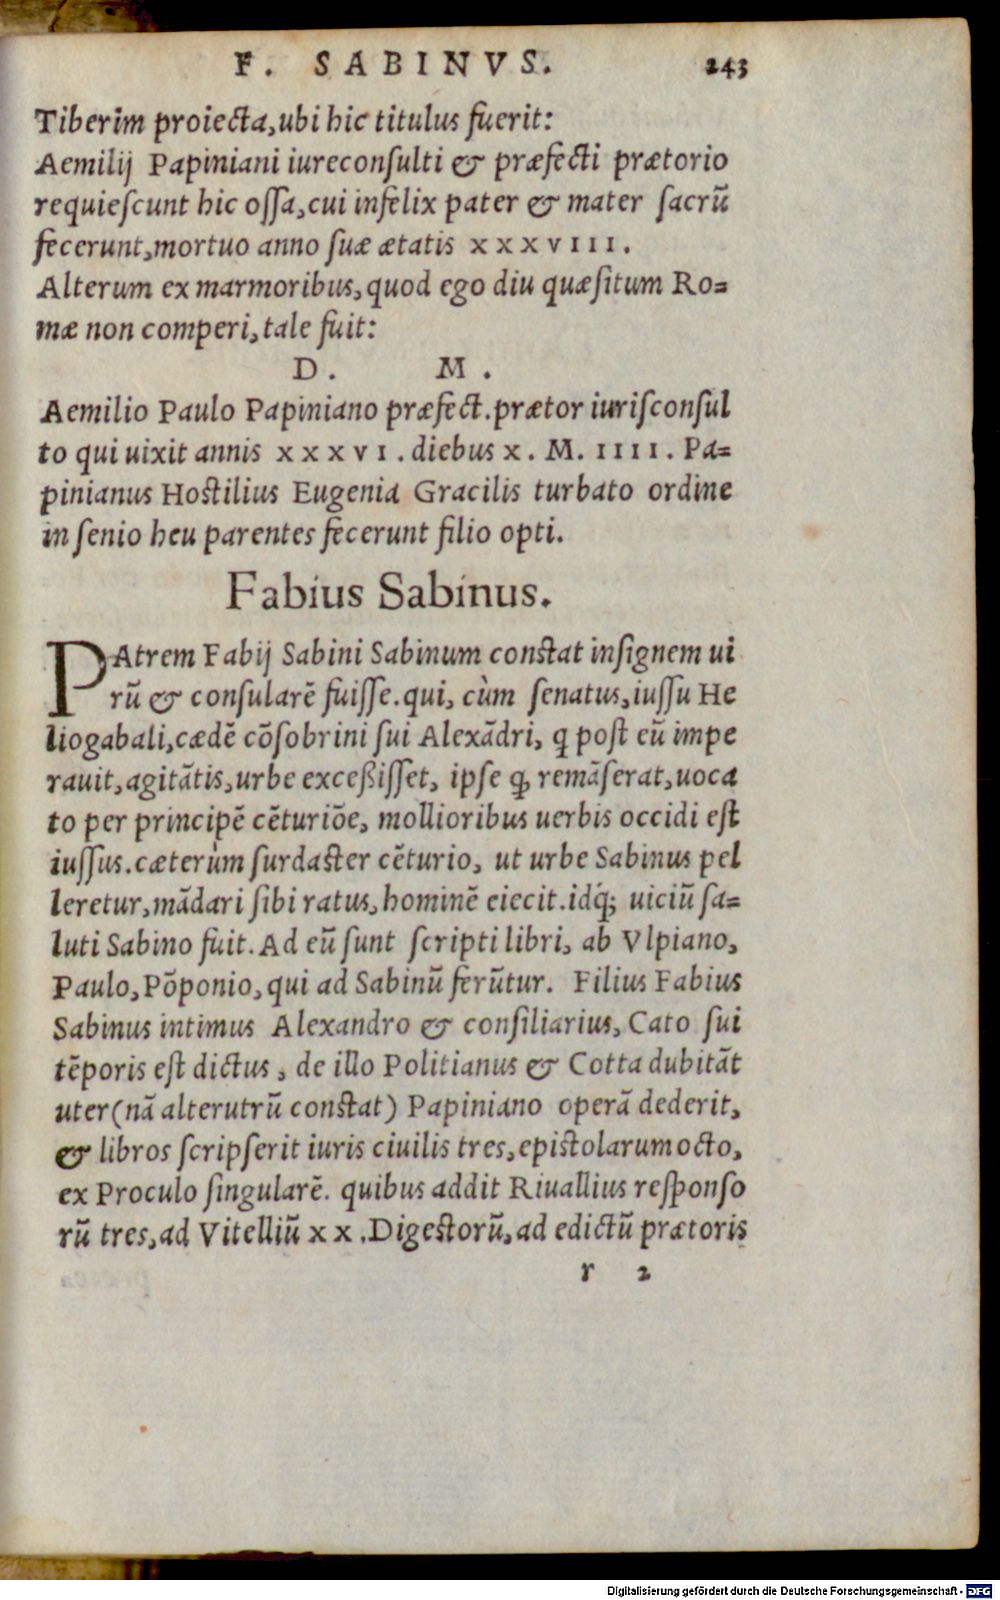 F. SABINVS. 243
Tiberim proiecta, ubi hic titulus fuerit:
Aemilij Papiniani iureconsulti & præfecti prætorio
requiescunt hic ossa, cui infelix pater & mater sacrũ
fecerunt, mortuo anno suæ ætatis XXXVIII.
Alterum ex marmoribus, quod ego diu quæsitum Ro=
mæ non comperi, tale fuit:
D. M.
Aemilio Paulo Papiniano præfect. prætor iurisconsul
to qui uixit annis XXXVI. diebus X. M. IIII. Pa=
pinianus Hostilius Eugenia Gracilis turbato ordine
in senio heu parentes fecerunt filio opti.
Fabius Sabinus.
PAtrem Fabij Sabini Sabinum constat insignem ui
rũ & consularẽ fuisse. qui, cùm senatus, iussu He
liogabali, cædẽ cõsobrini sui Alexãdri, q post eũ impe
rauit, agitãtis, urbe exceßisset, ipse ꝗ remãserat, uoca
to per principẽ cẽturiõe, mollioribus uerbis occidi est
iussus. cæterùm surdaster cẽturio, ut urbe Sabinus pel
leretur, mãdari sibi ratus, hominẽ eiecit. idq́; uiciũ sa=
luti Sabino fuit. Ad eũ sunt scripti libri, ab Vlpiano,
Paulo, Põponio, qui ad Sabinũ ferũtur. Filius Fabius
Sabinus intimus Alexandro & consiliarius, Cato sui
tẽporis est dictus, de illo Politianus & Cotta dubitãt
uter (nã alterutrũ constat) Papiniano operã dederit,
& libros scripserit iuris ciuilis tres, epistolarum octo,
ex Proculo singularẽ. quibus addit Riuallius responso
rũ tres, ad Vitelliũ XX. Digestorũ, ad edictũ prætoris
r 2
Digitalisierung gefördert durch die Deutsche Forschungsgemeinschaft - DFG